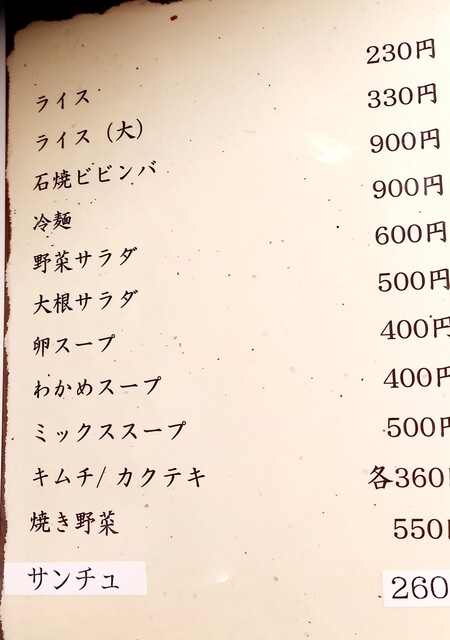 ライス 230円
ライス（大） 330円
石焼ビビンバ 900円
冷麺 900円
野菜サラダ 600円
大根サラダ 500円
卵スープ 400円
わかめスープ 400円
ミックススープ 500円
キムチ/カクテキ 各360円
焼き野菜 550円
サンチュ 260